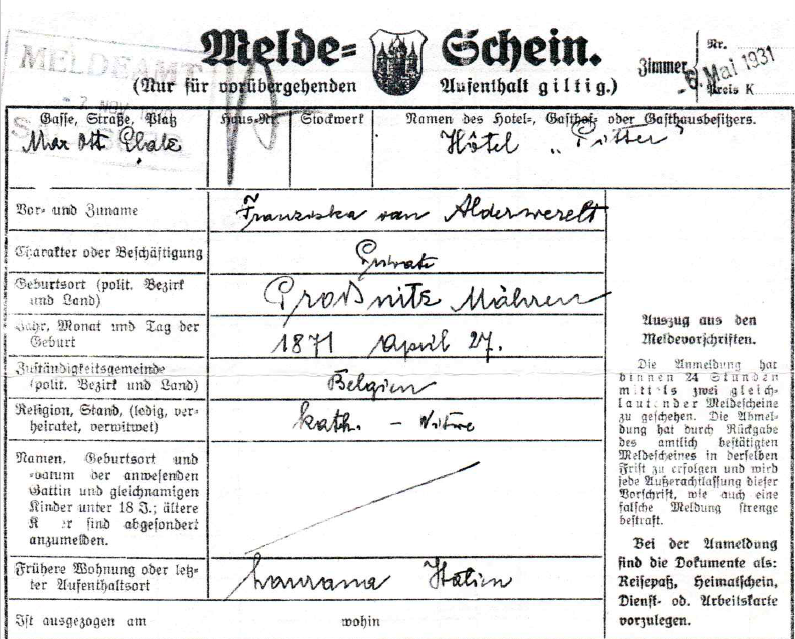 Melde-Schein.
(Nur für vorübergehenden Aufenthalt giltig.)
MELDEAMT
2. NOV.
Zimmer
Nr.
Kreis K
6. Mai 1931
Gasse, Straße, Platz
Haus-Nr.
Stockwerk
Namen des Hotel-, Gasthof- oder Gasthausbesitzers.
Max Ott Platz
Hôtel „Pitter"
Vor- und Zuname
Franziska van Alderwerelt
Charakter oder Beschäftigung
Private
Geburtsort (polit. Bezirk
und Land)
Proßnitz Mähren
Jahr, Monat und Tag der
Geburt
1871 April 27.
Zuständigkeitsgemeinde
(polit. Bezirk und Land)
Belgien
Religion, Stand, (ledig, ver-
heiratet, verwitwet)
kath. - Witwe
Namen, Geburtsort und
-datum der anwesenden
Gattin und gleichnamigen
Kinder unter 18 J.; ältere
K er sind abgesondert
anzumelden.
Frühere Wohnung oder letz-
ter Aufenthaltsort
Laurana Italien
Ist ausgezogen am
wohin
Auszug aus den
Meldevorschriften.
Die Anmeldung hat
binnen 24 Stunden
mittels zwei gleich-
lautender Meldescheine
zu geschehen. Die Abmel-
dung hat durch Rückgabe
des amtlich bestätigten
Meldescheines in derselben
Frist zu erfolgen und wird
jede Außerachtlassung dieser
Vorschrift, wie auch eine
falsche Meldung strenge
bestraft.
Bei der Anmeldung
sind die Dokumente als:
Reisepaß, Heimatschein,
Dienst- od. Arbeitskarte
vorzulegen.